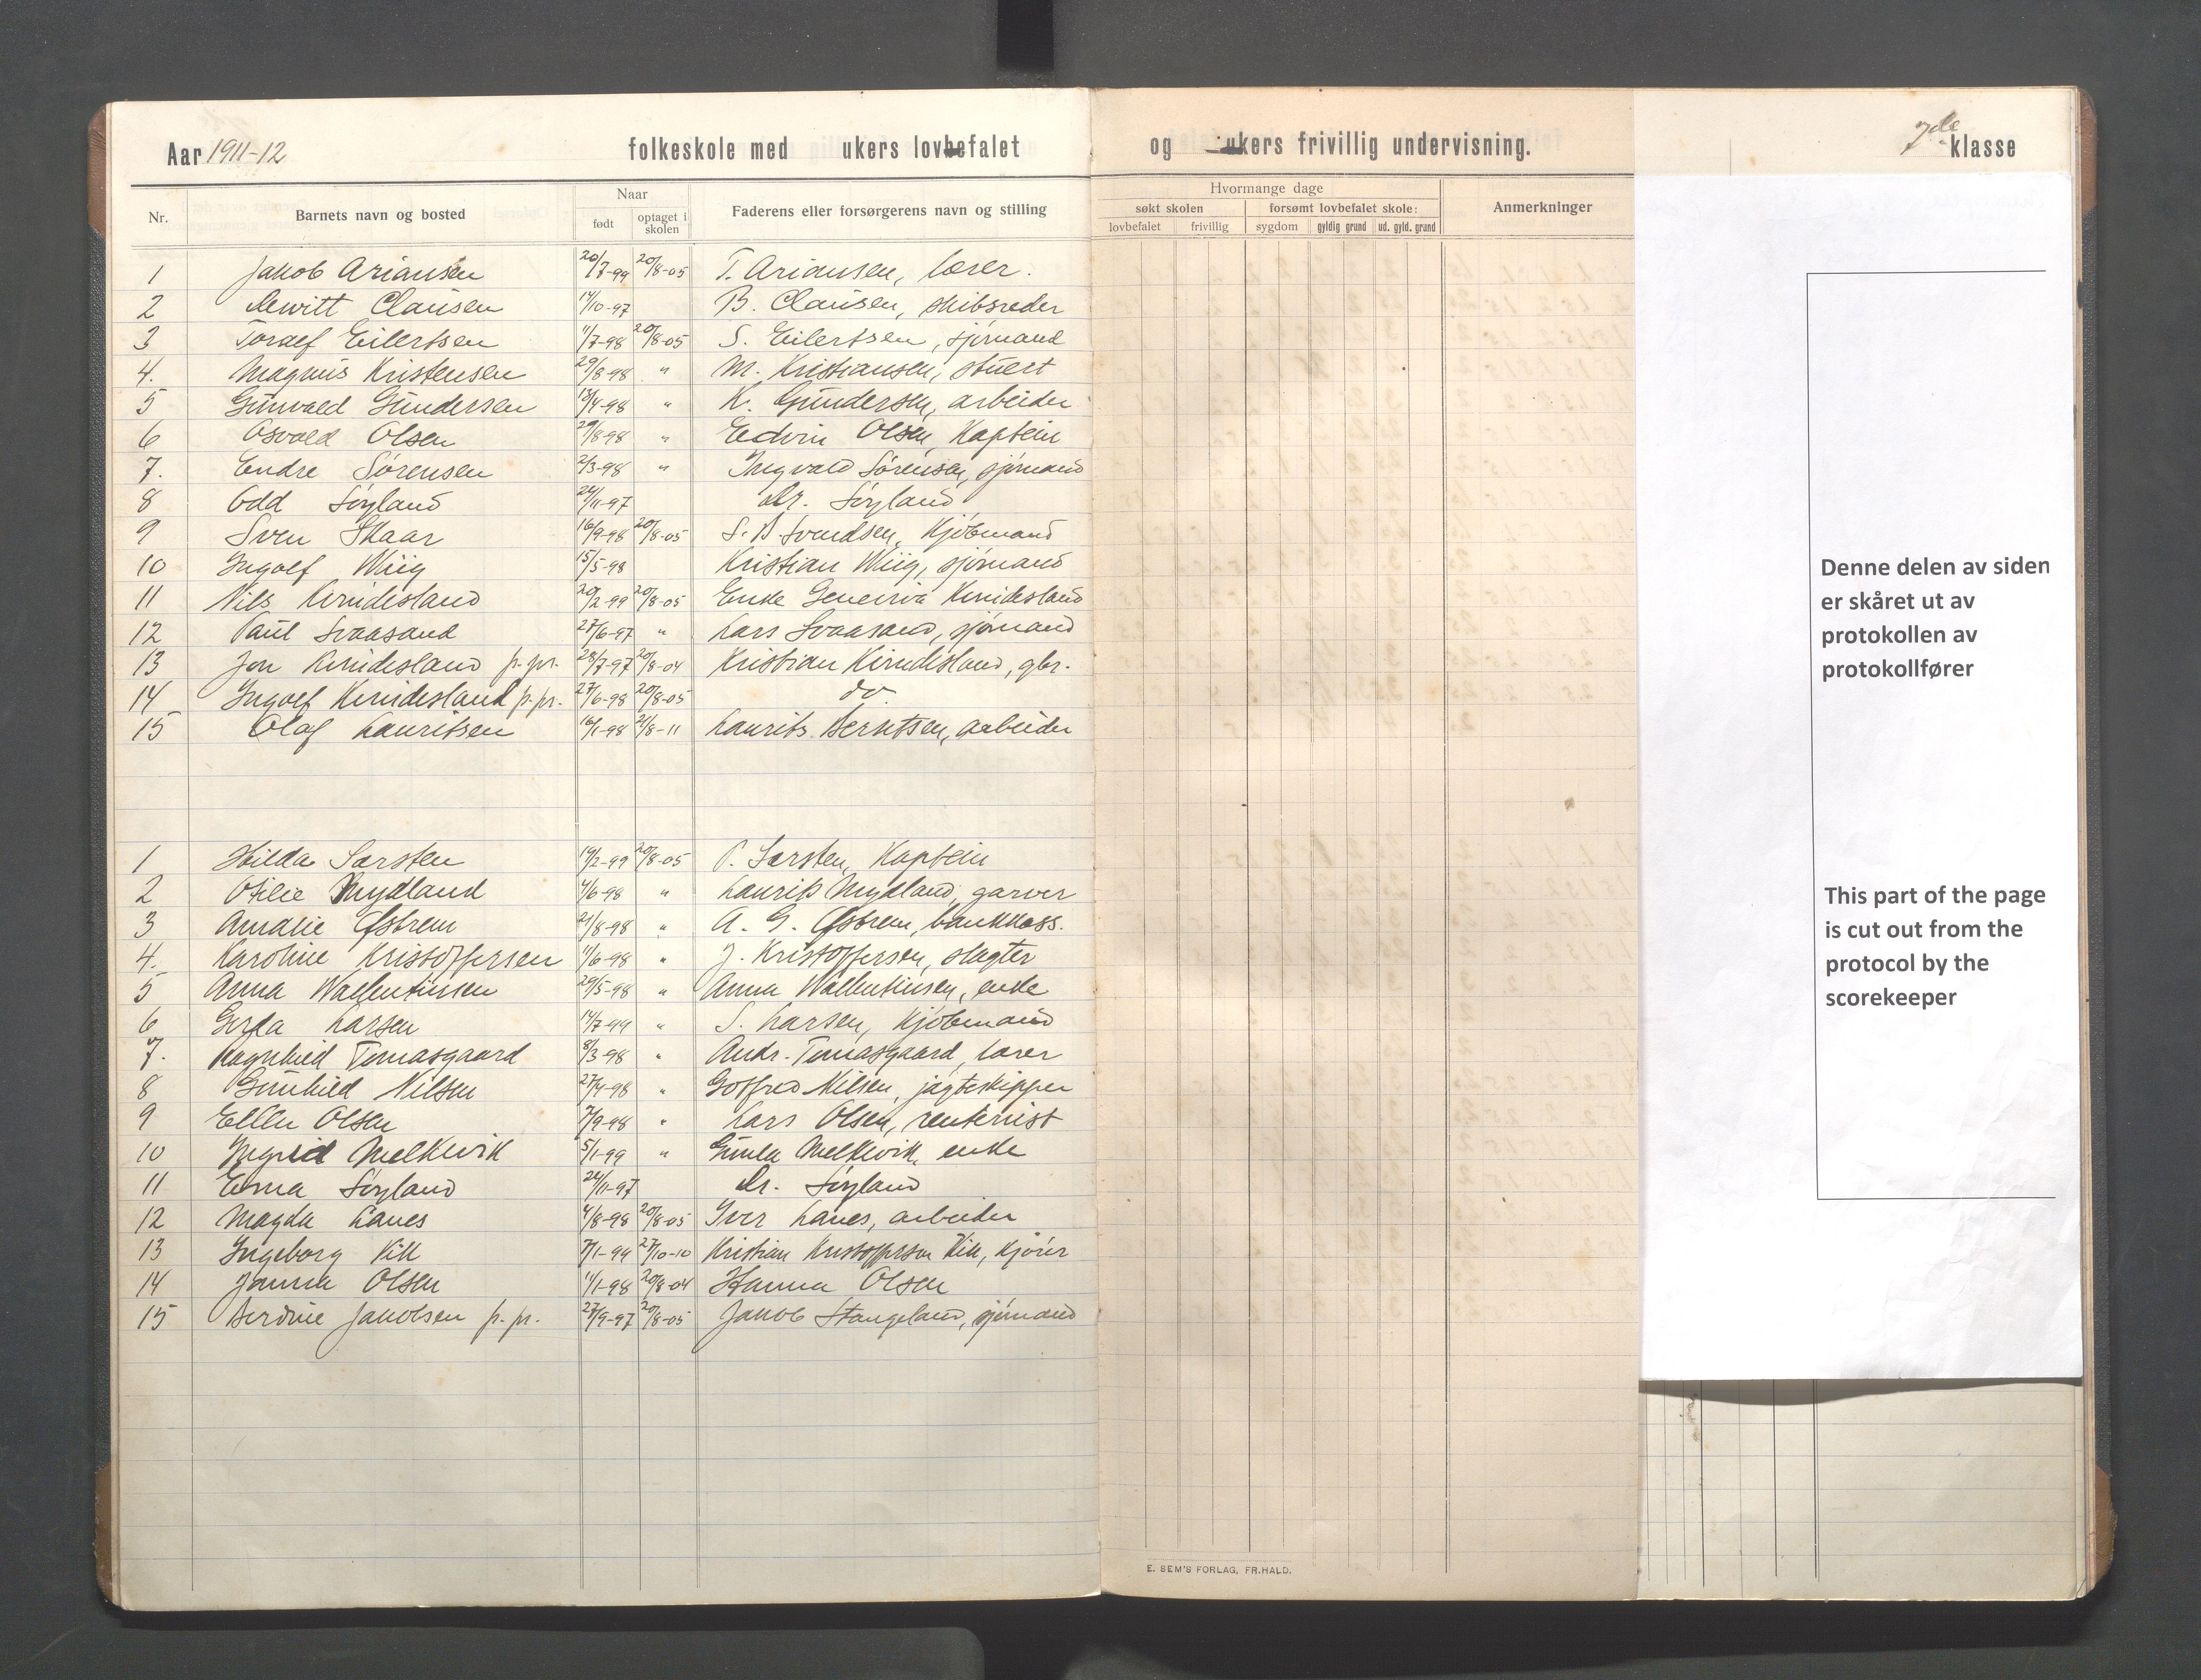 Aar 1911-12 folkeskole med ukers lovbefalet og ukers frivillig undervisning. 7de klasse
Nr. Barnets navn og bosted Naar født optaget i skolen Faderens eller forsørgerens navn og stilling Hvormange dage søkt skolen lovbefalet frivillig forsømt lovbefalet skole: sygdom gyldig grund ud. gyld. grund Anmerkninger
1 Jakob Ariansen 20/7-99 20/8-05 T. Ariansen, lærer.
2 Dewitt Clausen 14/10-97 B. Clausen, skibsreder
3 Toralf Eilertsen 11/7-98 20/8-05 S. Eilertsen, sjømand
4. Magnus Kristensen 29/8-98 " M. Kristiansen, stuert
5 Gunvald Gundersen 13/4-98 " K. Gundersen, arbeider
6 Osvald Olsen 29/8-98 " Edvin Olsen, Kaptein
7. Endre Sørensen 2/3-98 " Ingvald Sørensen, sjømand
8 Odd Søyland 24/11-97 Dr. Søyland
9 Sven Skaar 16/9-98 20/8-05 S. B. Svendsen, Kjøbmand
10 Ingolf Wiig 15/5-98 Kristian Wiig, sjømand
11 Nils Kvidesland 20/2-99 20/8-05 Enke Kvidesland
12 Paul Svaasand 27/6-97 " Lars Svaasand, sjømand
13 Jon Kvidesland p. pr. 28/7-97 20/8-04 Kristian Kvidesland, gbr.
14 Ingolf Kvidesland p. pr. 27/6-98 20/8-05 do.
15 Olaf Lauritsen 16/1-98 21/8-11 Laurits Berntsen, arbeider
1 Hilda Sørsten 19/2-99 20/8-05 P. Sørsten, Kaptein
2 Otilie Mydland 4/6-98 " Laurits Mydland, garver
3 Amalie Østrem 21/8-98 " A. G. Østrem, bankkass.
4. Karoline Kristoffersen 11/6-98 " J. Kristoffersen, slagter
5 Anna Wallentinsen 29/5-98 " Anna Wallentinsen, enke
6 Gerda Larsen 14/7-99 " S. Larsen, Kjøbmand
7. Ragnhild Tomasgaard 8/3-98 " Andr. Tomasgaard, lærer
8 Gunhild Nilsen 27/4-98 " Gotfred Nilsen, jagteskipper
9 Ellen Olsen 7/9-98 " Lars Olsen, rentenist
10 Ingrid Melkevik 5/1-99 " Gunla Melkevik, enke
11 Erna Søyland 24/11-97 Dr. Søyland
12 Magda Lanes 4/8-98 20/8-05 Iver Lanes, arbeider
13 Ingeborg Vik 7/1-99 27/10-10 Kristian Kristoffersen Vik, kjører
14 Janna Olsen 11/1-98 20/8-04 Hanna Olsen
15 Berdine Jakobsen p. pr. 27/9-97 20/8-05 Jakob Stangeland, sjømand
E. SEM'S FORLAG, FR.HALD.
Denne delen av siden
er skåret ut av
protokollen av
protokollfører
This part of the page
is cut out from the
protocol by the
scorekeeper